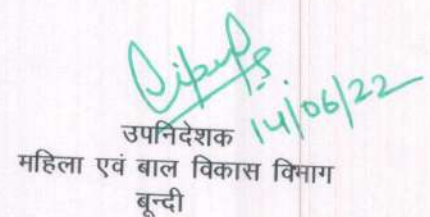 14/06/22
उपनिदेशक
महिला एवं बाल विकास विभाग
बून्दी